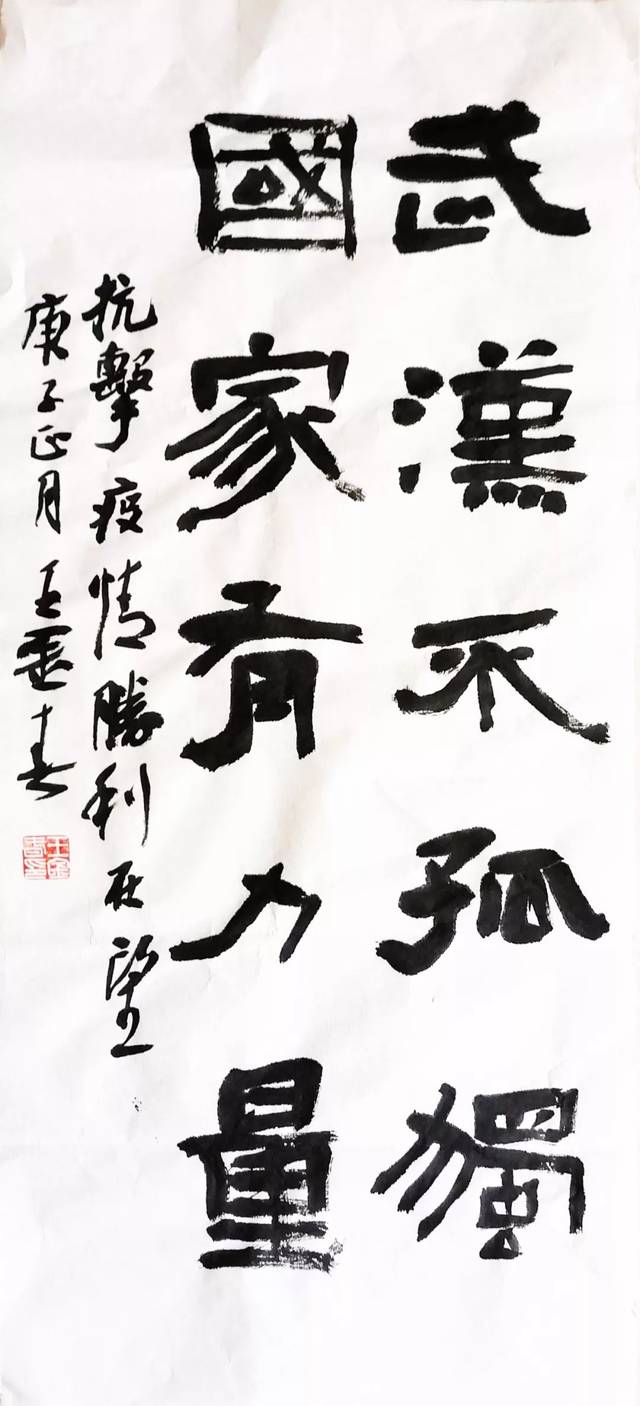 武漢不孤獨
國家有力量
抗擊疫情勝利在望
庚子正月王金春